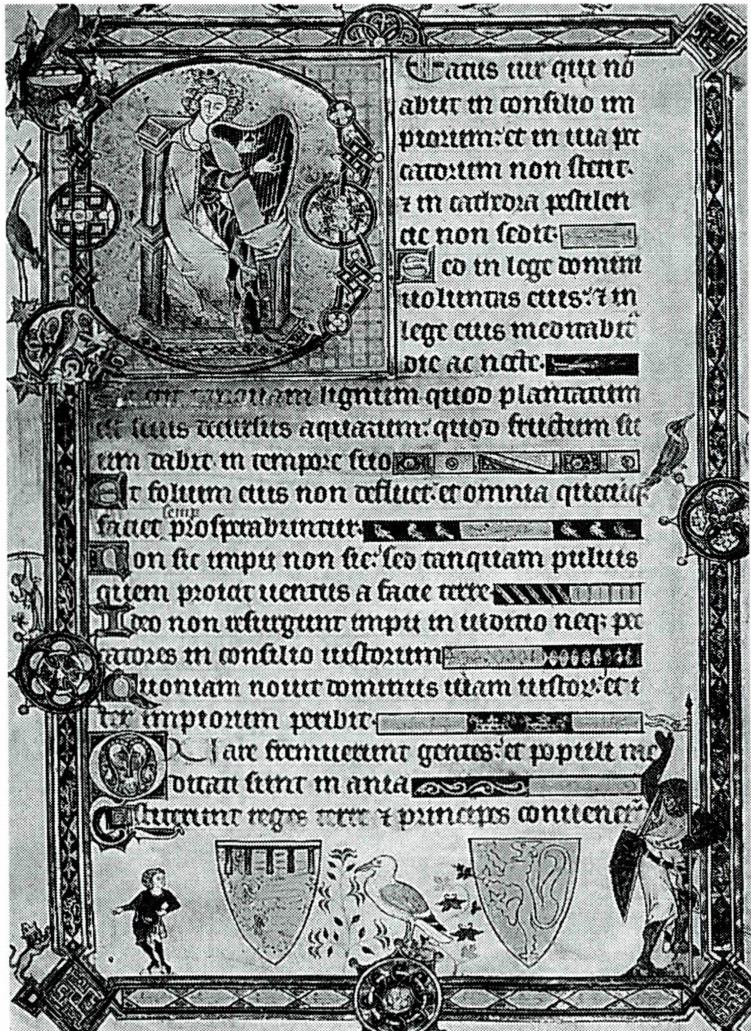 Eatus uir qui nō
abiit in consilio im
piorum: et in uia pec
catorum non stetit.
⁊ in cathedra pestilen
cie non sedit.
Sed in lege domini
uoluntas eius: ⁊ in
lege eius meditabit̄
die ac nocte.
erit tanquam lignum quod plantatum
est decursus aquarum: quod fructum su
um dabit in tempore suo
Et folium eius non defluet: et omnia
semp
faciet prosperabuntur.
Non sic impii non sic: sed tanquam puluis
quem proicit uentus a facie terre
Ideo non resurgunt impii in iudicio neq; pec
catores in consilio iustorum
Quoniam nouit dominus uiam iustor: et i
ter impiorum peribit.
Quare fremuerunt gentes: et populi me
ditati sunt inania
Astiterunt reges terre ⁊ principes